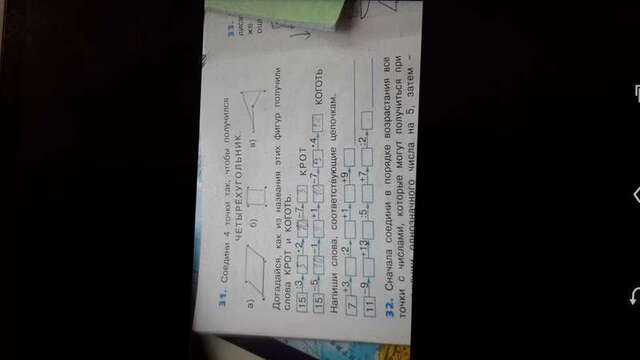 31. Соедини 4 точки так, чтобы получился
ЧЕТЫРЁХУГОЛЬНИК.
а) б) в)
Догадайся, как из названия этих фигур получили
слова КРОТ и КОГОТЬ.
15 :3 ·2 −7 КРОТ
15 −5 −1 +1 −7 ·4 КОГОТЬ
Напиши слова, соответствующие цепочкам.
7 +3 :2 +1 +9
11 −9 +13 :5 +7 :2
32. Сначала соедини в порядке возрастания все
точки с числами, которые могут получиться при
однозначного числа на 5, затем –
33.